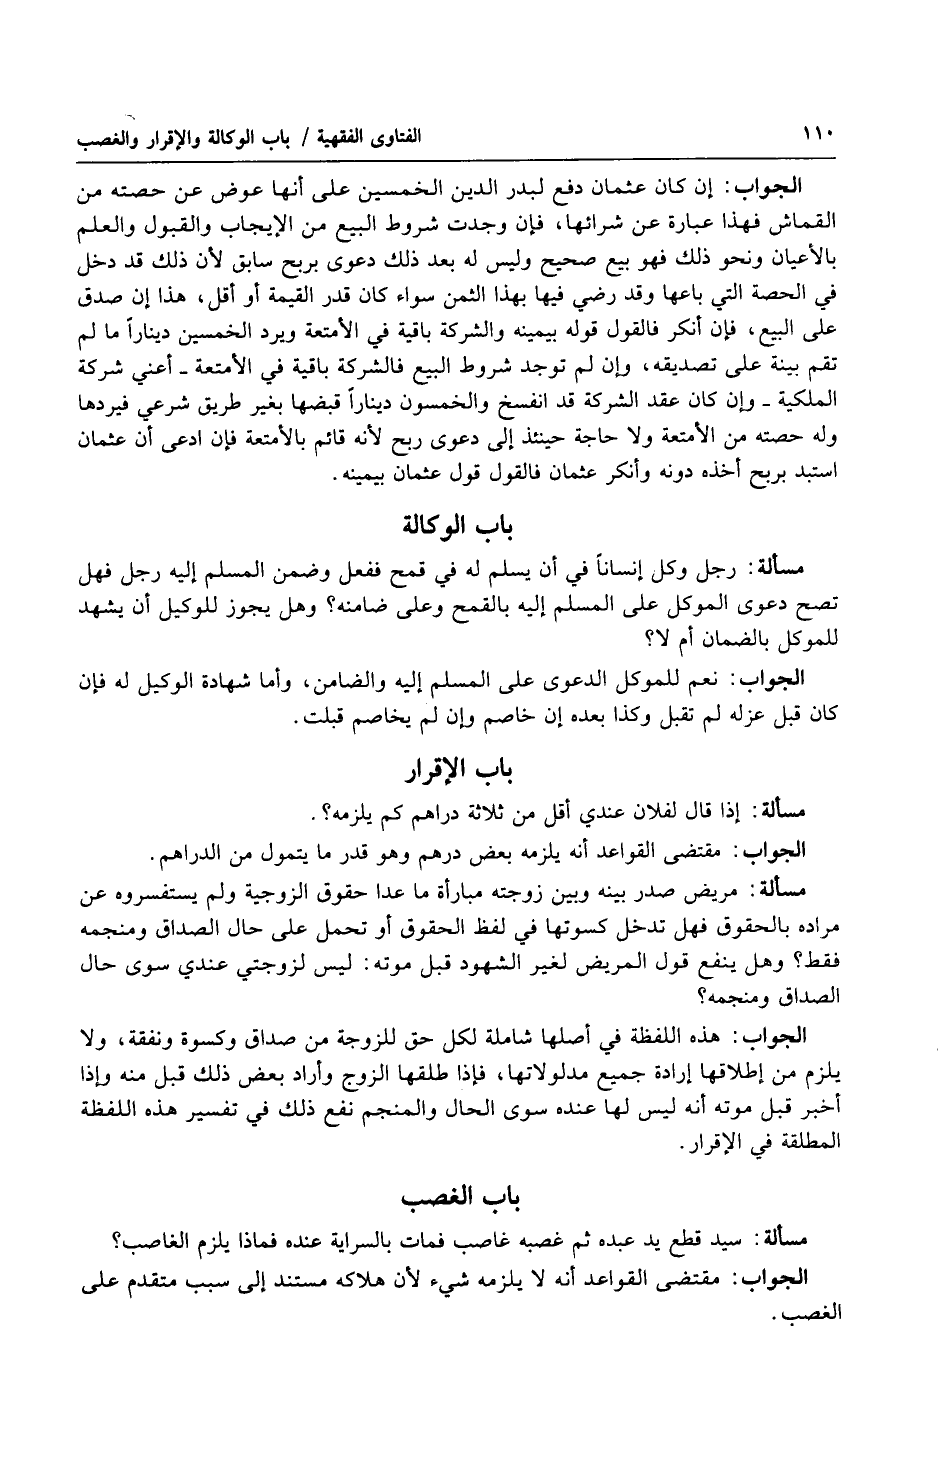 ١١٠ الفتاوى الفقهية / باب الوكالة والإقرار والغصب
الجواب: إن كان عثمان دفع لبدر الدين الخمسين على أنها عوض عن حصته من
القماش فهذا عبارة عن شرائها، فإن وجدت شروط البيع من الإيجاب والقبول والعلم
بالأعيان ونحو ذلك فهو بيع صحيح وليس له بعد ذلك دعوى بربح سابق لأن ذلك قد دخل
في الحصة التي باعها وقد رضي فيها بهذا الثمن سواء كان قدر القيمة أو أقل، هذا إن صدق
على البيع، فإن أنكر فالقول قوله بيمينه والشركة باقية في الأمتعة ويرد الخمسين ديناراً ما لم
تقم بينة على تصديقه، وإن لم توجد شروط البيع فالشركة باقية في الأمتعة ـ أعني شركة
الملكية ـ وإن كان عقد الشركة قد انفسخ والخمسون ديناراً قبضها بغير طريق شرعي فيردها
وله حصته من الأمتعة ولا حاجة حينئذ إلى دعوى ربح لأنه قائم بالأمتعة فإن ادعى أن عثمان
استبد بربح أخذه دونه وأنكر عثمان فالقول قول عثمان بيمينه.
باب الوكالة
مسألة: رجل وكل إنساناً في أن يسلم له في قمح ففعل وضمن المسلم إليه رجل فهل
تصح دعوى الموكل على المسلم إليه بالقمح وعلى ضامنه؟ وهل يجوز للوكيل أن يشهد
للموكل بالضمان أم لا؟
الجواب: نعم للموكل الدعوى على المسلم إليه والضامن، وأما شهادة الوكيل له فإن
كان قبل عزله لم تقبل وكذا بعده إن خاصم وإن لم يخاصم قبلت.
باب الإقرار
مسألة: إذا قال لفلان عندي أقل من ثلاثة دراهم كم يلزمه؟.
الجواب: مقتضى القواعد أنه يلزمه بعض درهم وهو قدر ما يتمول من الدراهم.
مسألة: مريض صدر بينه وبين زوجته مبارأة ما عدا حقوق الزوجية ولم يستفسروه عن
مراده بالحقوق فهل تدخل كسوتها في لفظ الحقوق أو تحمل على حال الصداق ومنجمه
فقط؟ وهل ينفع قول المريض لغير الشهود قبل موته: ليس لزوجتي عندي سوى حال
الصداق ومنجمه؟
الجواب: هذه اللفظة في أصلها شاملة لكل حق للزوجة من صداق وكسوة ونفقة، ولا
يلزم من إطلاقها إرادة جميع مدلولاتها، فإذا طلقها الزوج وأراد بعض ذلك قبل منه وإذا
أخبر قبل موته أنه ليس لها عنده سوى الحال والمنجم نفع ذلك في تفسير هذه اللفظة
المطلقة في الإقرار.
باب الغصب
مسألة: سيد قطع يد عبده ثم غصبه غاصب فمات بالسراية عنده فماذا يلزم الغاصب؟
الجواب: مقتضى القواعد أنه لا يلزمه شيء لأن هلاكه مستند إلى سبب متقدم على
الغصب.